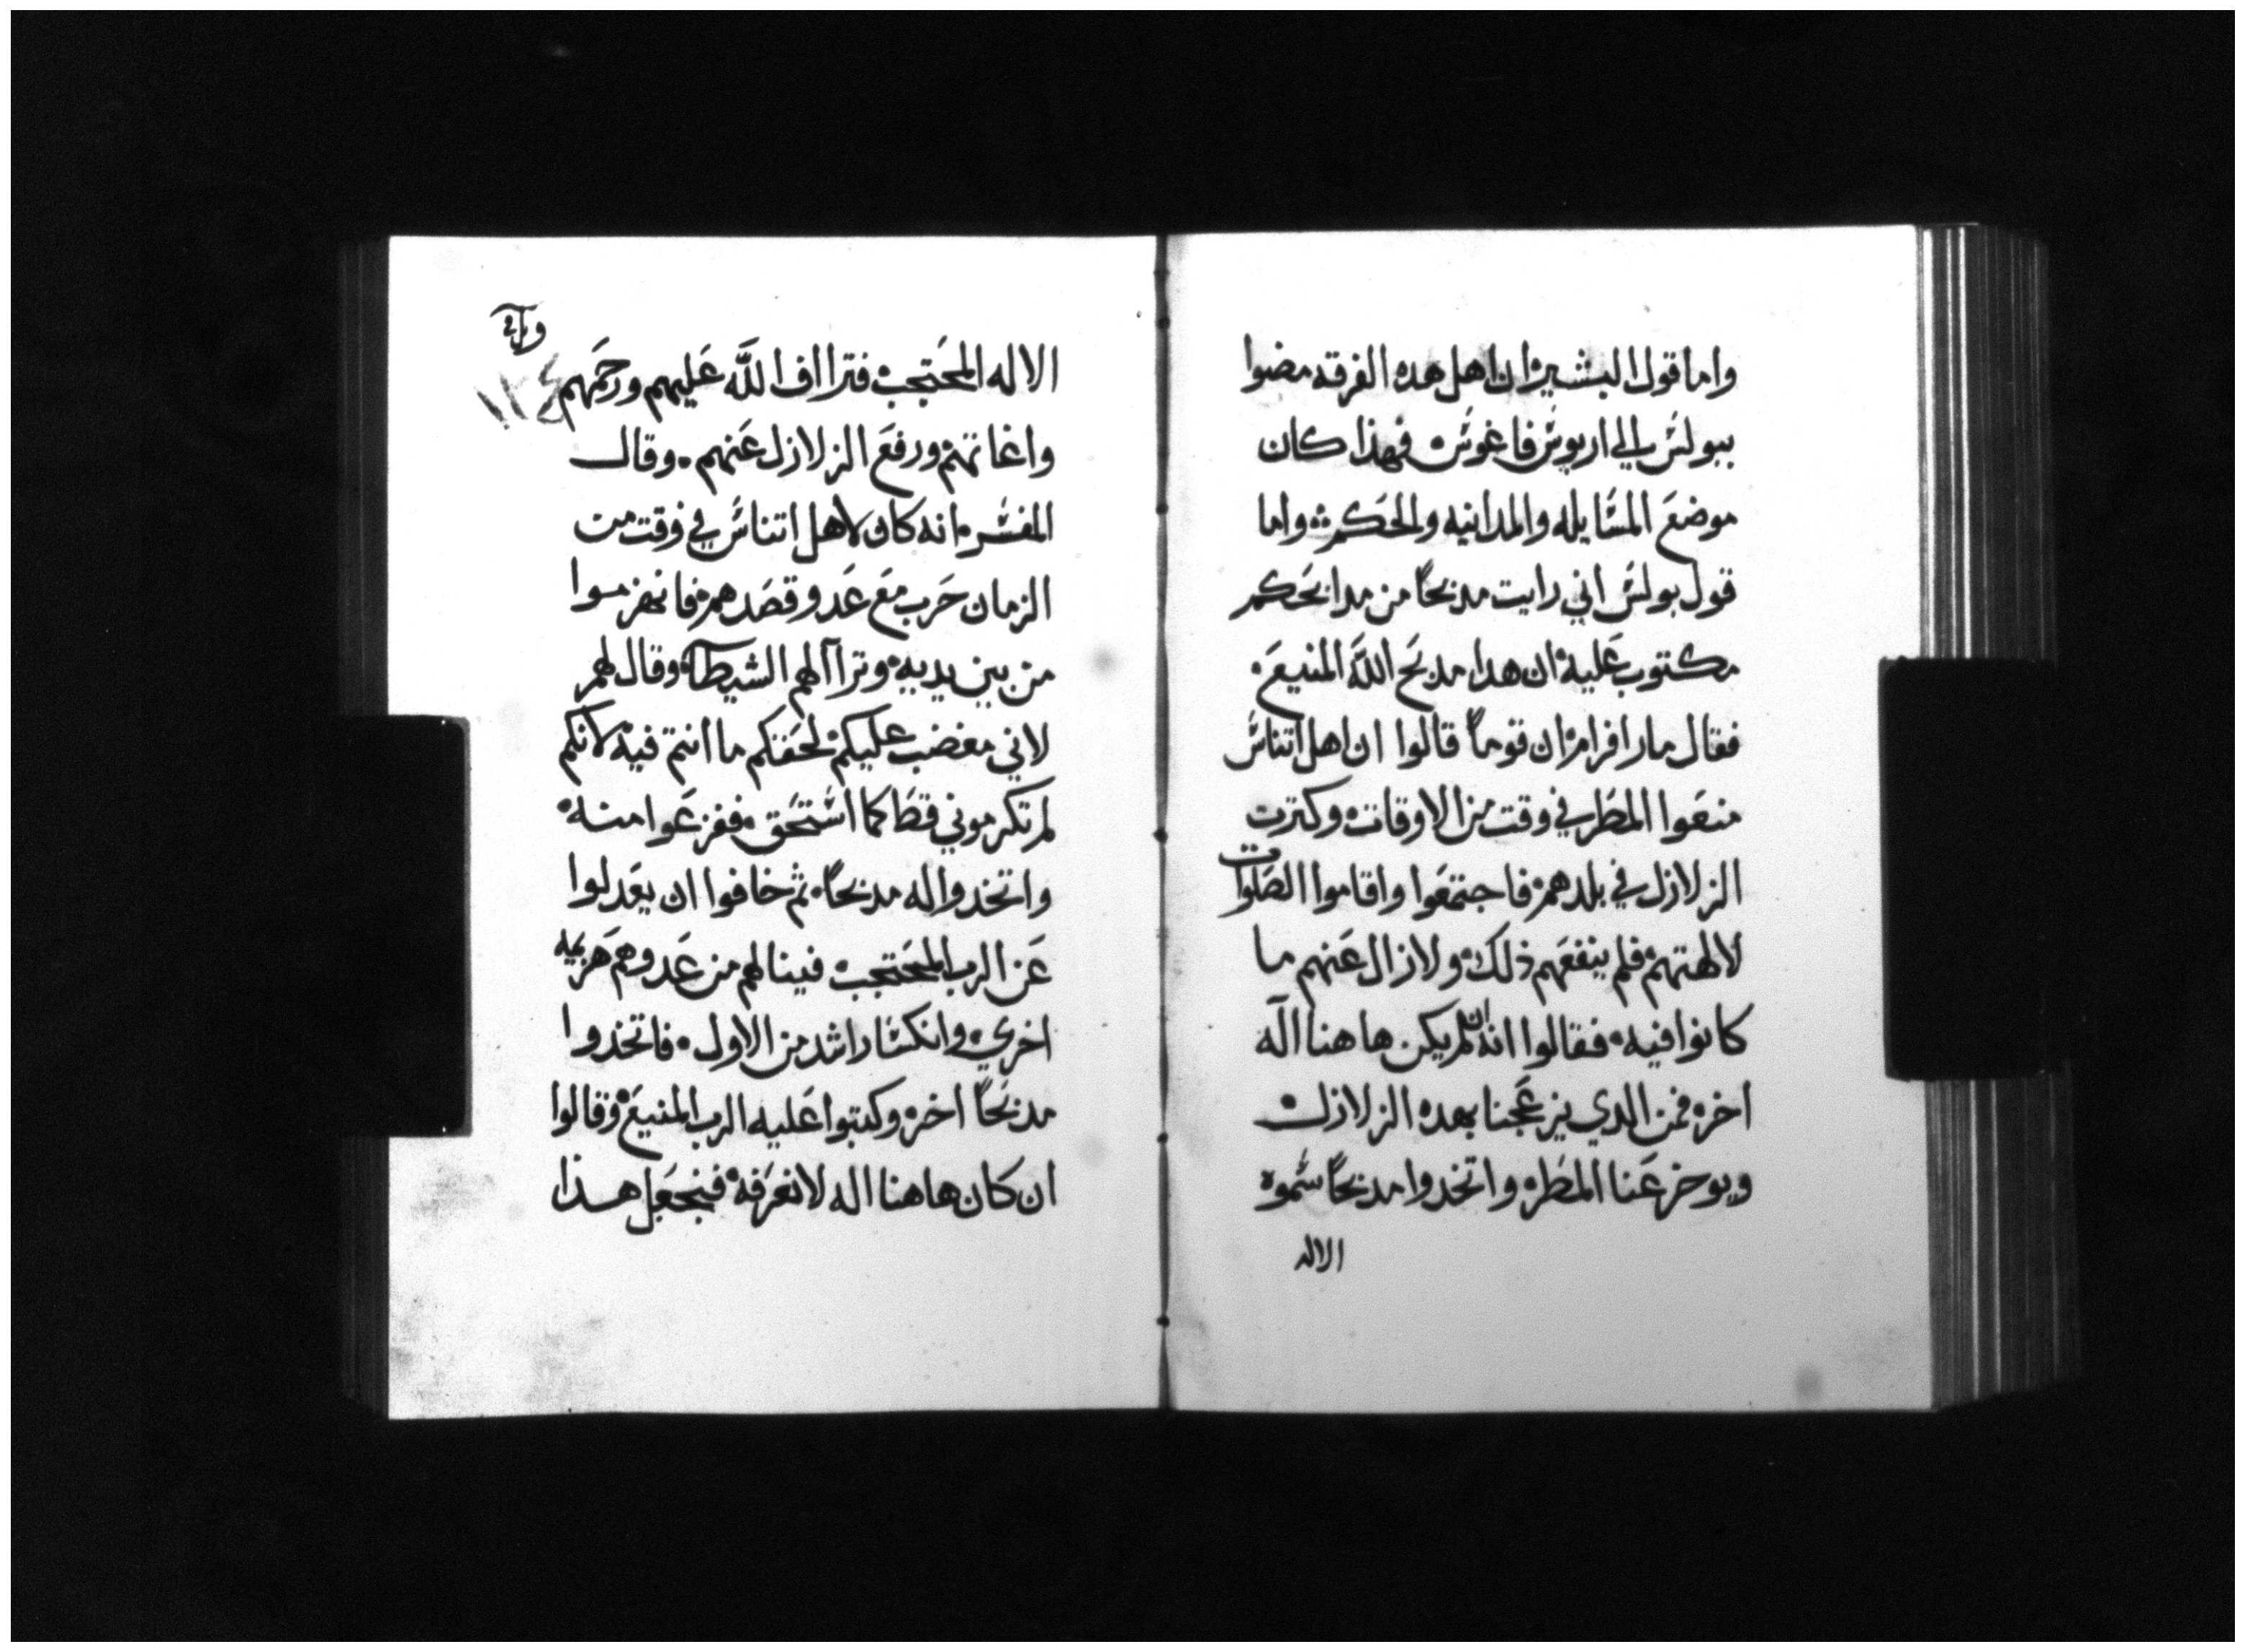 واما قول البشير ان اهل هده الفرقه مضوا
ببولس الي اريوس فاغوس فهذا كان
موضع المسايله والمدانيه والحكم واما
قول بولس اني رايت مدبحاً من مدابحكم
مكتوب عليه ان هدا مدبح الله المنيع
فقال مار افرام ان قوماً قالوا ان اهل اتناس
منعوا المطر في وقت من الاوقات وكترت
الزلازل في بلدهم فاجتمعوا واقاموا الصلوات
لالهتهم فلم ينفعهم ذلك ولا زال عنهم ما
كانوا فيه فقالوا انه ان لم يكن هاهنا اله
اخر فمن الدي يزعجنا بهده الزلازل
ويوخر عنا المطر واتخدوا مدبحاً سموه
الاله
١٢٤
الاله المحتجب فتراف الله عليهم ورحمهم
واغاتهم ورفع الزلازل عنهم وقال
المفسر انه كان لاهل اتناس في وقت من
الزمان حرب مع عدو قصدهم فانهزموا
من بين يديه وتراا لهم الشيطان وقال لهم
لاني مغضب عليكم لحقكم ما انتم فيه لانكم
لم تكرموني قط كما استحق ففزعوا منه
واتخدوا له مدبحاً ثم خافوا ان يعدلوا
عن الرب المحتجب فينالهم من عدوهم هزيمه
اخري وانكسار اشد من الاول فاتخدوا
مدبحاً اخر وكتبوا عليه الرب المنيع وقالوا
ان كان هاهنا اله لا نعرفه فنجعل هذا